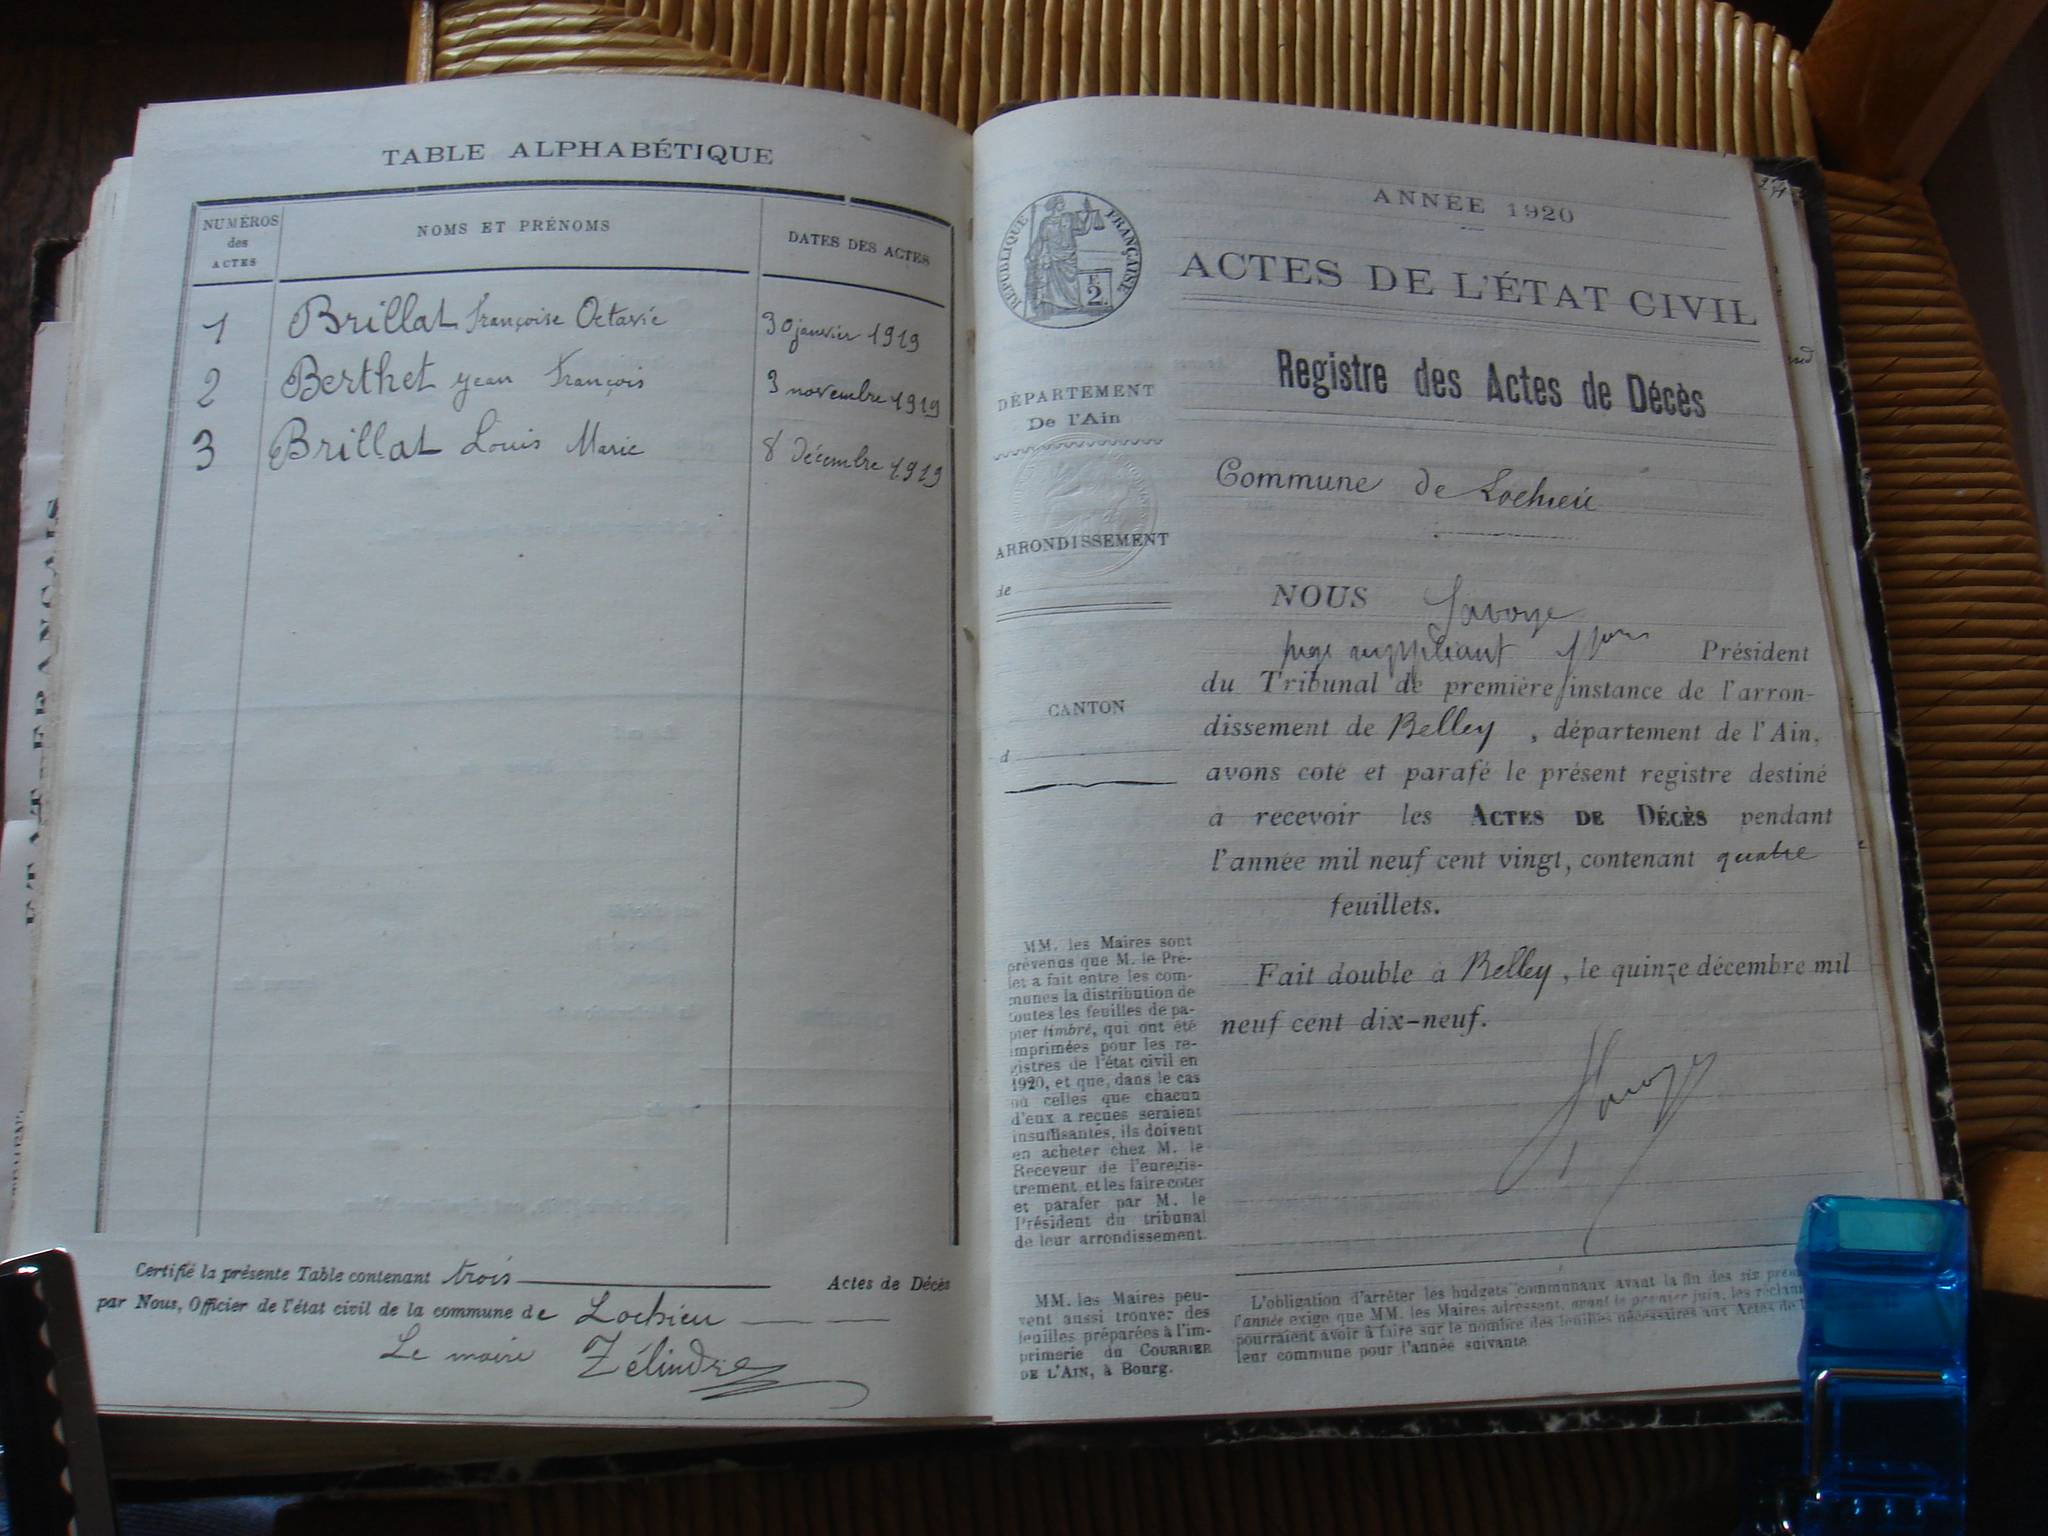 TABLE ALPHABÉTIQUE
NUMÉROS
des
ACTES
NOMS ET PRÉNOMS
DATES DES ACTES
1 Brillat Françoise Octavie 30 janvier 1919
2 Berthet Jean François 3 novembre 1919
3 Brillat Louis Marie 8 Décembre 1919
Certifié la présente Table contenant trois Actes de Décès
par Nous, Officier de l'état civil de la commune de Lochieu
Le maire Zélindre
ANNÉE 1920
RÉPUBLIQUE FRANÇAISE
2
ACTES DE L'ÉTAT CIVIL
Registre des Actes de Décès
DÉPARTEMENT
De l'Ain
ARRONDISSEMENT
de
CANTON
d
Commune de Lochieu
NOUS Savoye
juge suppléant Président
du Tribunal de première instance de l'arron-
dissement de Belley, département de l'Ain,
avons coté et parafé le présent registre destiné
à recevoir les ACTES DE DÉCÈS pendant
l'année mil neuf cent vingt, contenant quatre
feuillets.
Fait double à Belley, le quinze décembre mil
neuf cent dix-neuf.
Savoye
MM. les Maires sont
prévenus que M. le Pré-
fet a fait entre les com-
munes la distribution de
toutes les feuilles de pa-
pier timbré, qui ont été
imprimées pour les re-
gistres de l'état civil en
1920, et que, dans le cas
où celles que chacun
d'eux a reçues seraient
insuffisantes, ils doivent
en acheter chez M. le
Receveur de l'enregis-
trement et les faire coter
et parafer par M. le
Président du tribunal
de leur arrondissement.
MM. les Maires peu-
vent aussi trouver des
feuilles préparées à l'im-
primerie du COURRIER
DE L'AIN, à Bourg.
L'obligation d'arrêter les budgets communaux avant la fin des six
l'année exige que MM. les Maires adressent, avant le premier juin, les
pourraient avoir à faire sur le nombre des feuilles nécessaires aux Actes de
leur commune pour l'année suivante.